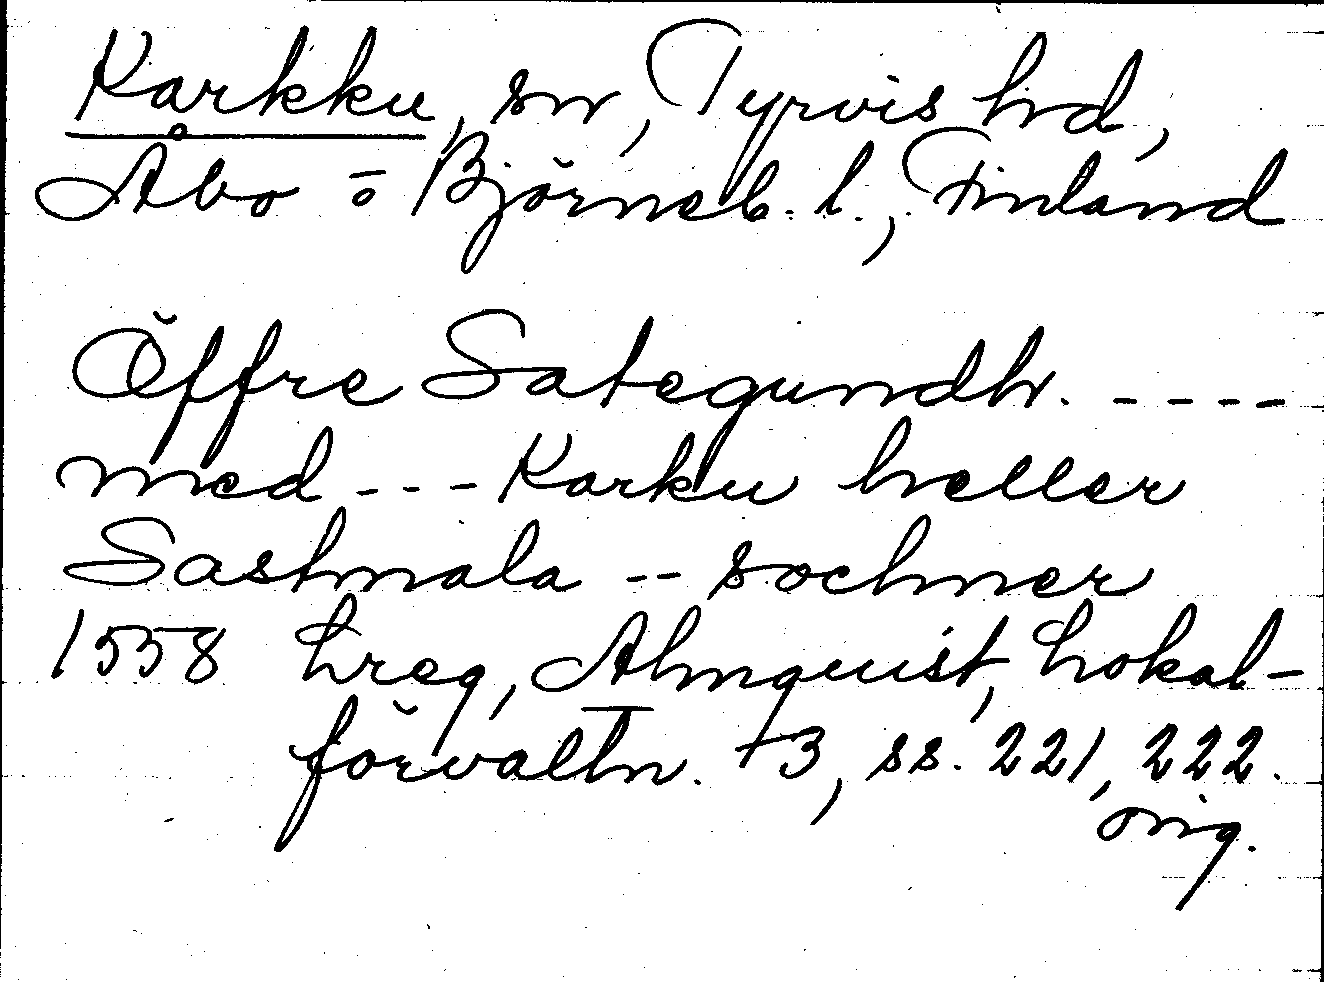 Karkku, sn, Tyrvis hd,
Åbo o Björneb. l., Finland
Öffre Sategundh. ----
med --- Karku heller
Sastmala -- sochner
1558 hreg, Almquist, Lokal-
förvaltn. +3, ss. 221, 222.
orig.